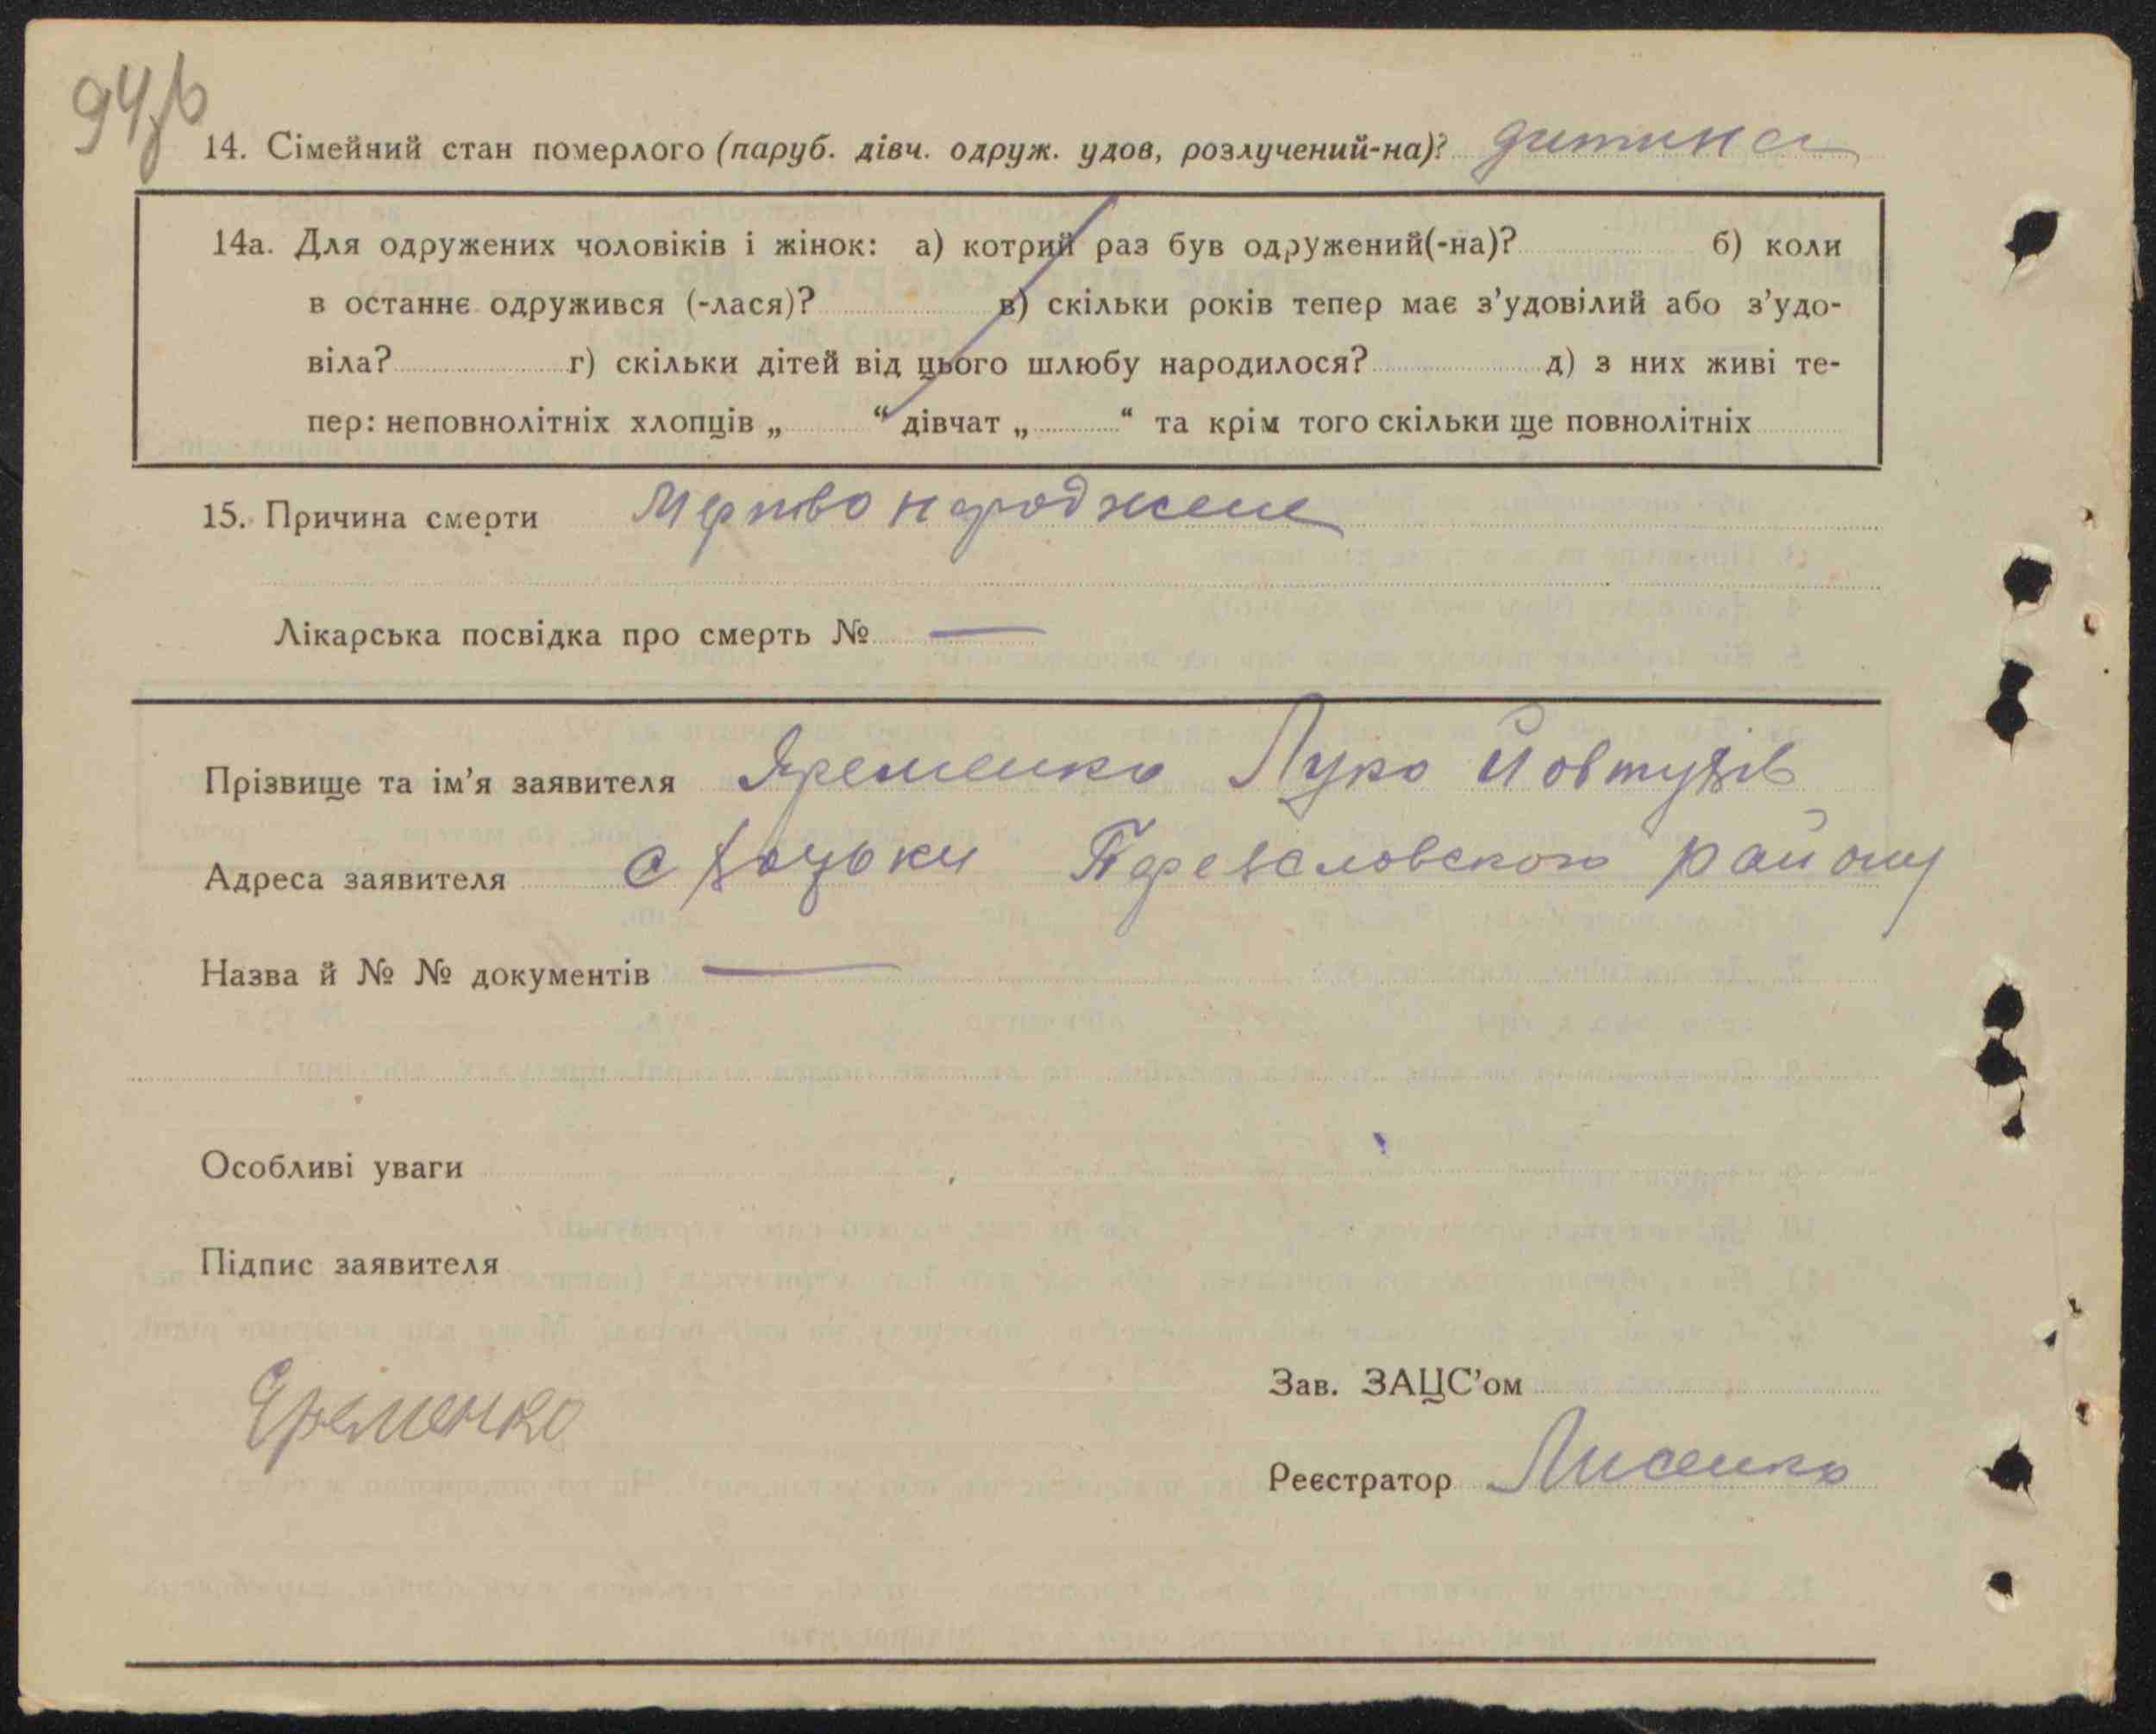 94зв
14. Сімейний стан померлого (паруб. дівч. одруж. удов, розлучений-на)? дитина
14а. Для одружених чоловіків і жінок: а) котрий раз був одружений(-на)? б) коли
в останнє одружився (-лася)? в) скільки років тепер має з’удовілий або з’удо-
віла? г) скільки дітей від цього шлюбу народилося? д) з них живі те-
пер: неповнолітніх хлопців „ “ дівчат „ “ та крім того скільки ще повнолітніх
15. Причина смерти Мертво народжене
Лікарська посвідка про смерть № —
Прізвище та ім’я заявителя Яременко Луко Йовтухів
Адреса заявителя с Переяславського району
Назва й № № документів —
Особливі уваги
Підпис заявителя
Яременко
Зав. ЗАЦС’ом
Реєстратор Лисенко